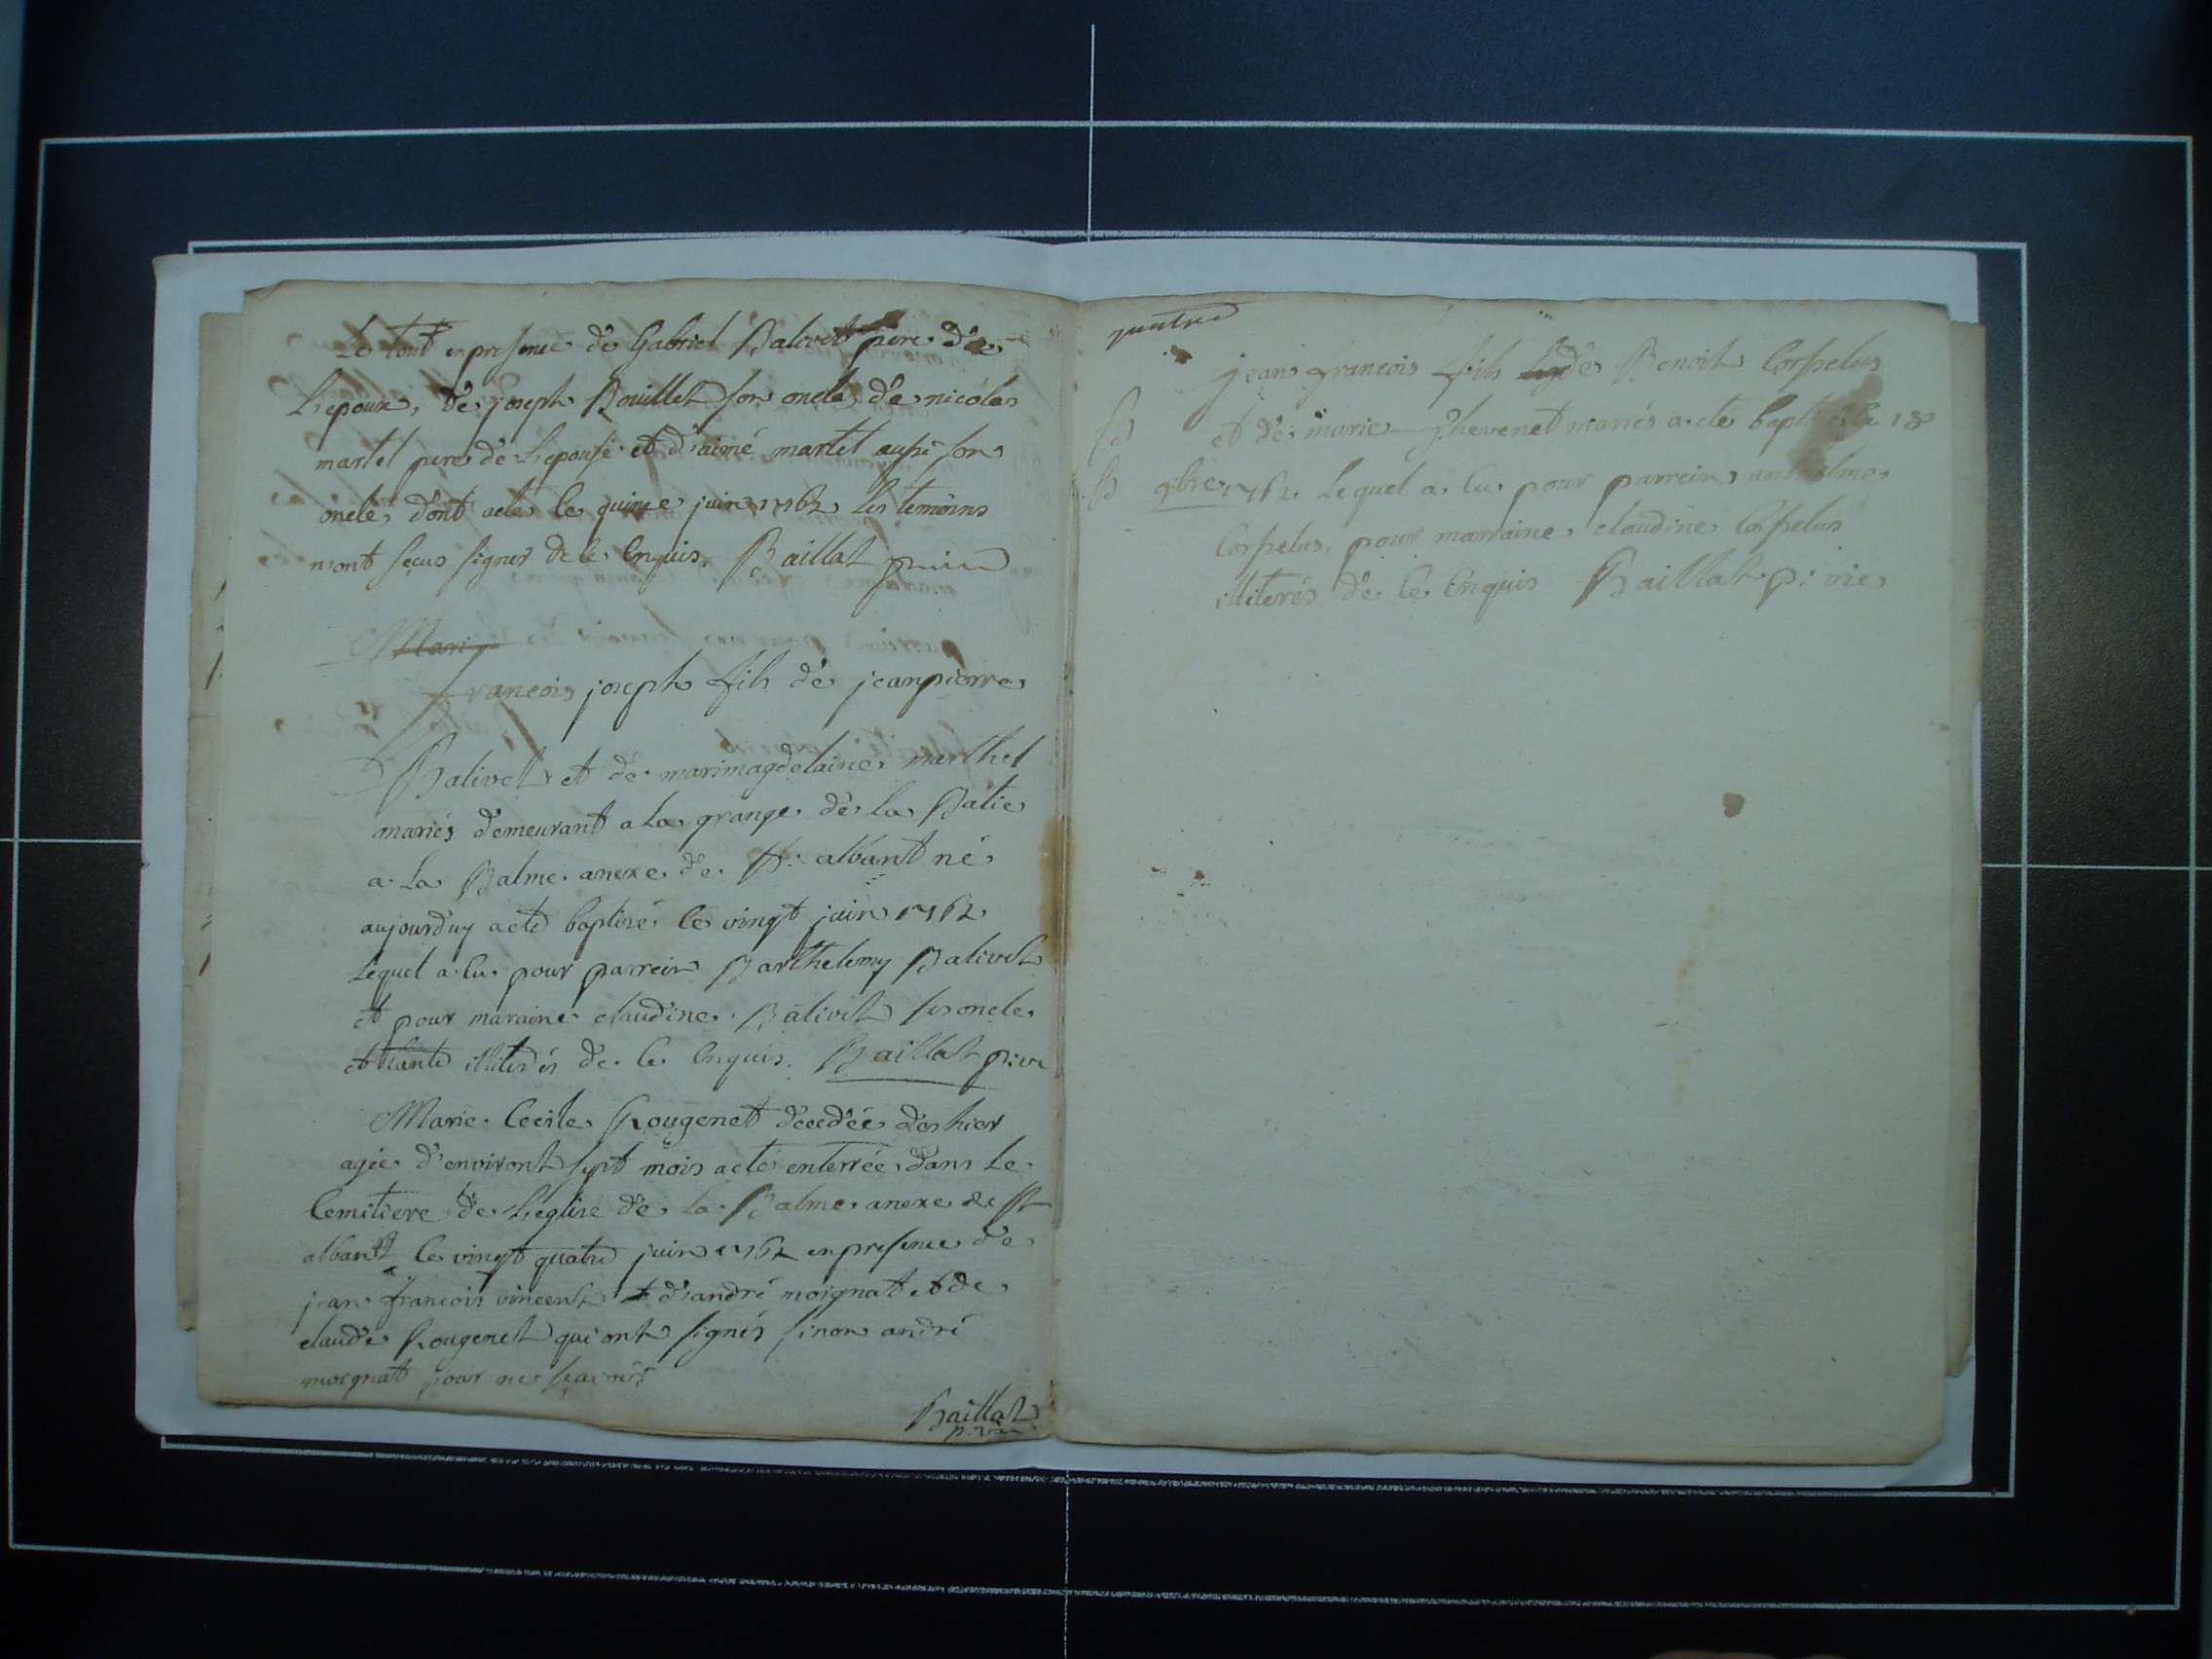 Le tout en presence de Gabriel Balivet pere de
L'epoux, de joseph Bouillet son oncle, de nicolas
martel pere de L'epouse et d'aimé martel aussi son
oncle, dont acte le quinze juin 1762 les temoins
n'ont sçeus signer de ce Enquis. Baillat
Mari
francois joseph fils de jeanpierre
Balivet et de marimagdelaine marthel
mariés demeurant a La grange de la Batie
a La Balme anexe de St: albant né
aujourduy acté baptisé le vingt juin 1762
Lequel a eu pour parrein Barthelemy Balivet
et pour maraine claudine Balivet ses oncle
et tante illiterés de ce Enquis. Baillat p: vic
Marie Cecile Rougenet decedée des hier
agée d'environt sept mois acté enterrée dans Le
Cemitiere de L'eglise de La Balme anexe de St
albant le vingt quatre juin 1762 en presence de
jean francois vincent et d'andré moignat et de
claude Rougenet qui ont signés sinon andré
moignat pour ne sçavoir
Baillat
p. vic
quatre
jean francois fils de Benoit Corselus
et de marie Thevenet mariés a eté baptisé le 18
B 9bre 1762. Lequel a eu pour parrein anthelme
Corselus, pour marraine claudine Corselus
illiterés de ce Enquis Baillat p: vic